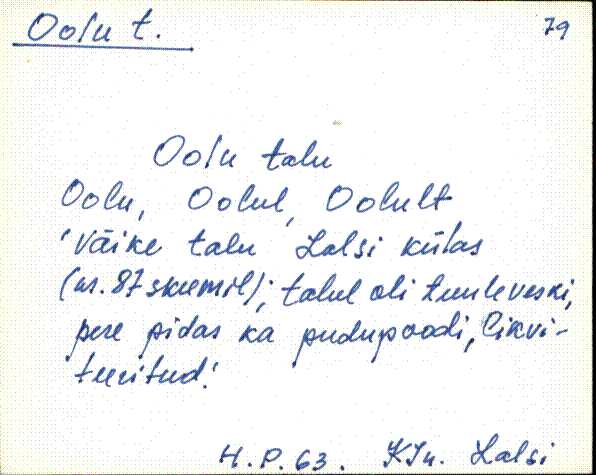 Oolu t.
79
Oolu talu
Oolu, Oolul, Oolult
'Väike talu Lalsi külas
(nr. 87 skeemil); talul oli tuuleveski,
pere pidas ka pudupoodi, likvi-
teeritud.'
H.P. 63. KJn. Lalsi